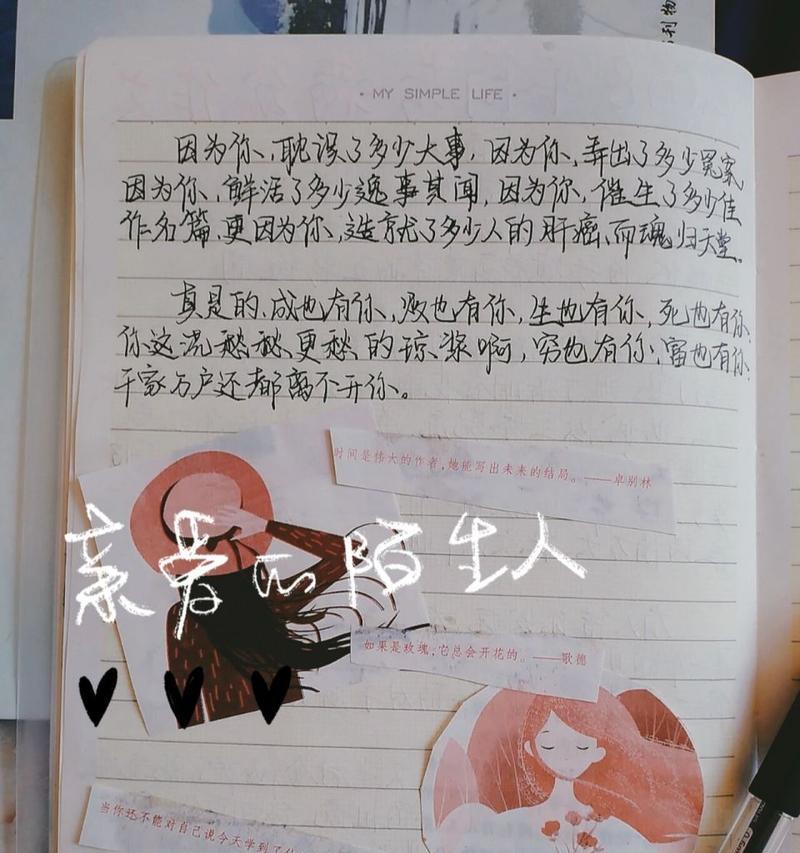 刊物
· MY SIMPLE LIFE ·
因为你、耽误了多少大事，因为你、弄出了多少冤家，
因为你、鲜活了多少逸事其闻，因为你、催生了多少佳
作名篇、更因为你、造就了多少人的肝癌、而魂归天堂。
真是的、成也有你、败也有你，生也有你，死也有你、
你这混愁愁、更愁的琼浆啊，穷也有你、富也有你、
千家万户还都离不开你。
时间是伟大的作者，她能写出未来的结局。——卓别林
亲爱的陌生人
如果是玫瑰，它总会开花的。——歌德
当你还不能对自己说今天学到了什